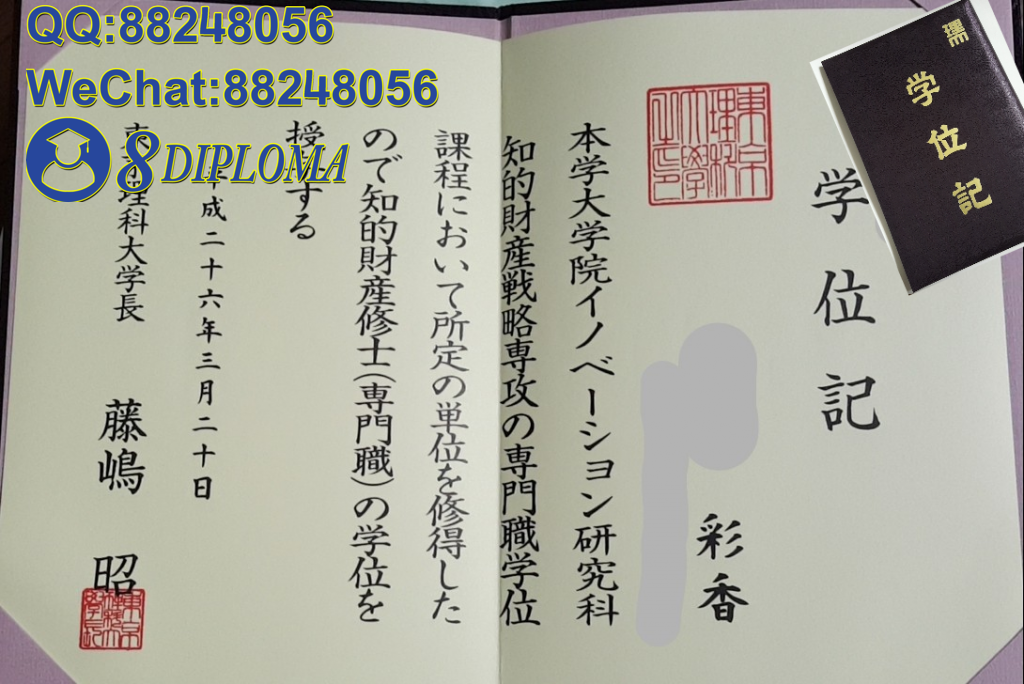 QQ:88248056
WeChat:88248056
8 DIPLOMA
学位記
学位記
東京理科大学
彩香
本学大学院イノベーション研究科
知的財産戦略専攻の専門職学位
課程において所定の単位を修得した
ので知的財産修士(専門職)の学位を
授与する
平成二十六年三月二十日
東京理科大学長
藤嶋 昭
東京理科大学長